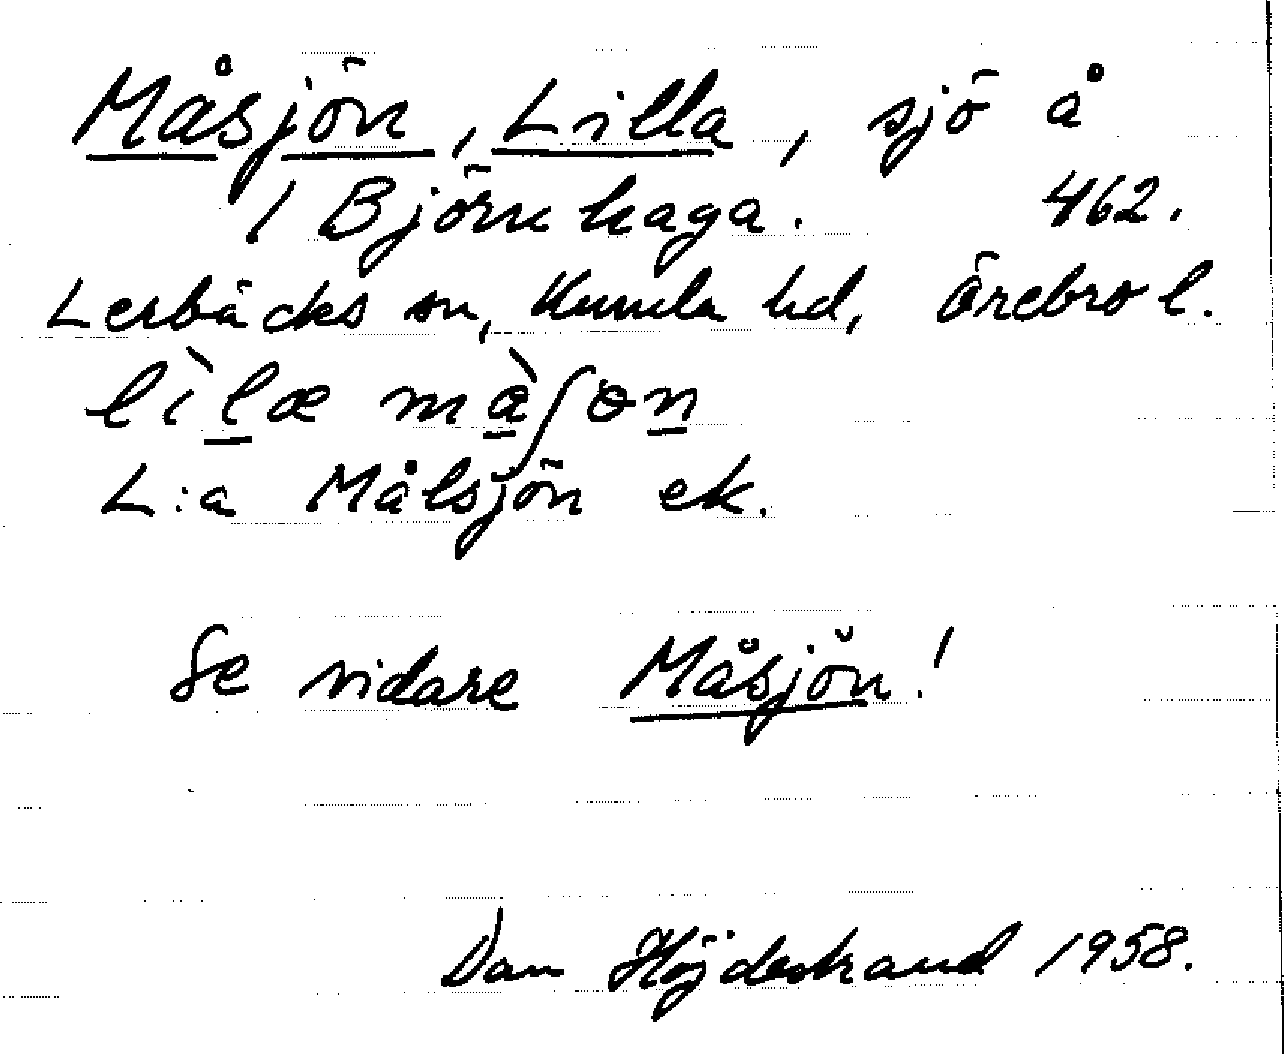 Måsjön, Lilla, sjö å
1 Björnhaga. 462.
Lerbäcks sn, Kumla hd, Örebro l.
lìlæ màʃɵn
L:a Målsjön ek.
Se vidare Måsjön!
Dan Höjdestrand 1958.